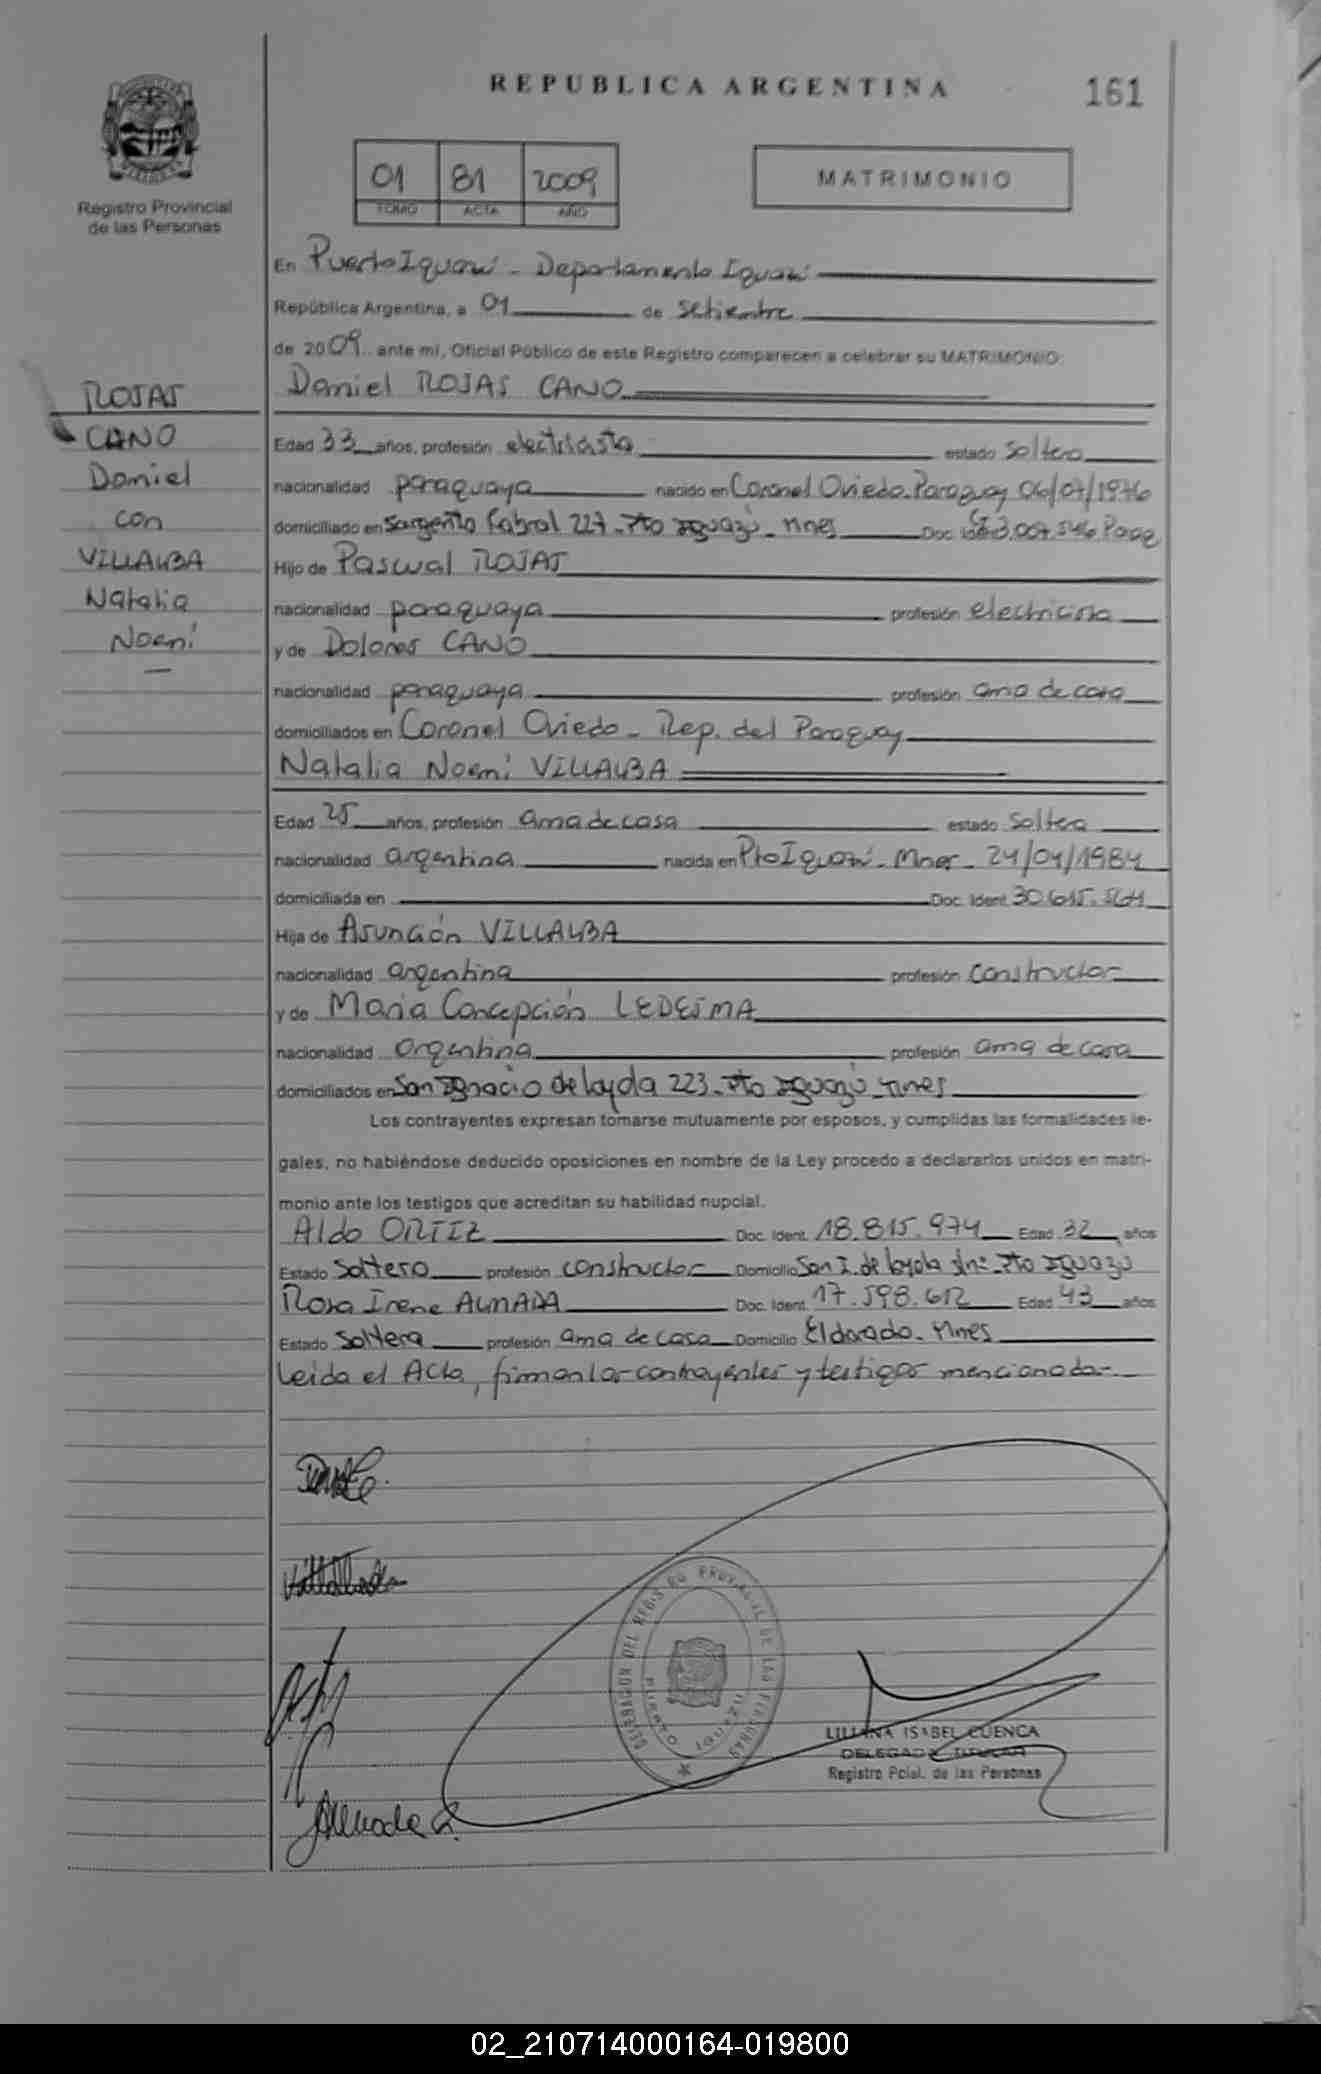 REPUBLICA ARGENTINA
161
Registro Provincial
de las Personas
01 81 2009
TOMO ACTA AÑO
MATRIMONIO
En Puerto Iguazú - Departamento Iguazú
República Argentina, a 01 de setiembre
de 2009 ante mí, Oficial Público de este Registro comparecen a celebrar su MATRIMONIO:
ROJAS
CANO
Daniel
con
VILLALBA
Natalia
Noemí
Daniel ROJAS CANO
Edad 33 años, profesión electricista estado soltero
nacionalidad paraguaya nacido en Coronel Oviedo-Paraguay 06/07/1976
domiciliado en Sargento Cabral 227-Pto Iguazú-Mnes Doc. Ident.
Hijo de Pascual ROJAS
nacionalidad paraguaya profesión electricista
y de Dolores CANO
nacionalidad paraguaya profesión ama de casa
domiciliados en Coronel Oviedo - Rep. del Paraguay
Natalia Noemí VILLALBA
Edad 25 años, profesión ama de casa estado soltera
nacionalidad argentina nacida en Pto Iguazú - Mnes - 24/04/1984
domiciliada en Doc. Ident. 30.615.
Hija de Asunción VILLALBA
nacionalidad argentina profesión constructor
y de María Concepción LEDESMA
nacionalidad argentina profesión ama de casa
domiciliados en San Ignacio de loyola 223-Pto Iguazú-Mnes
Los contrayentes expresan tomarse mutuamente por esposos, y cumplidas las formalidades le-
gales, no habiéndose deducido oposiciones en nombre de la Ley procedo a declararlos unidos en matri-
monio ante los testigos que acreditan su habilidad nupcial.
Aldo ORTIZ Doc. Ident. 18.815.974 Edad 32 años
Estado soltero profesión constructor Domicilio San I. de loyola s/nº Pto Iguazú
Rosa Irene ALMADA Doc. Ident. 17.598.612 Edad 43 años
Estado soltera profesión ama de casa Domicilio Eldorado - Mnes
Leida el Acta, firman los contrayentes y testigos mencionados
DELEGACION DEL REGISTRO PROVINCIAL DE LAS PERSONAS
PUERTO IGUAZU
LILIANA ISABEL CUENCA
DELEGADA TITULAR
Registro Pcial. de las Personas
Almada R.
02_210714000164-019800